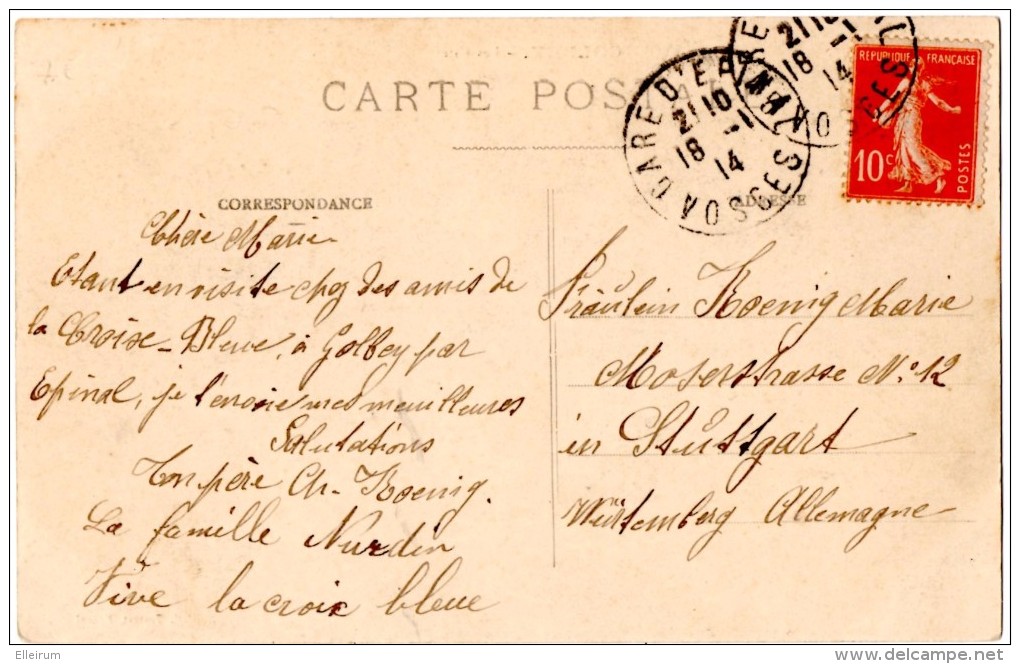 CARTE POST
GARE D'EPINAL
21 10
18 -1
14
VOSGES
21 10
18 -1
14
VOSGES
REPUBLIQUE FRANÇAISE
10c
POSTES
CORRESPONDANCE
ADRESSE
Chère Marie
Etant en visite chez des amis de
la Croix-Bleue, à Golbey par
Epinal, je t'envoie mes meilleures
Salutations
Ton père Ch. Koenig.
La famille Nurdin
Vive la croix bleue
Fräulein Koenig Marie
Moserstrasse No. 12
in Stuttgart
Würtemberg Allemagne
Elleirum
delcampe.net